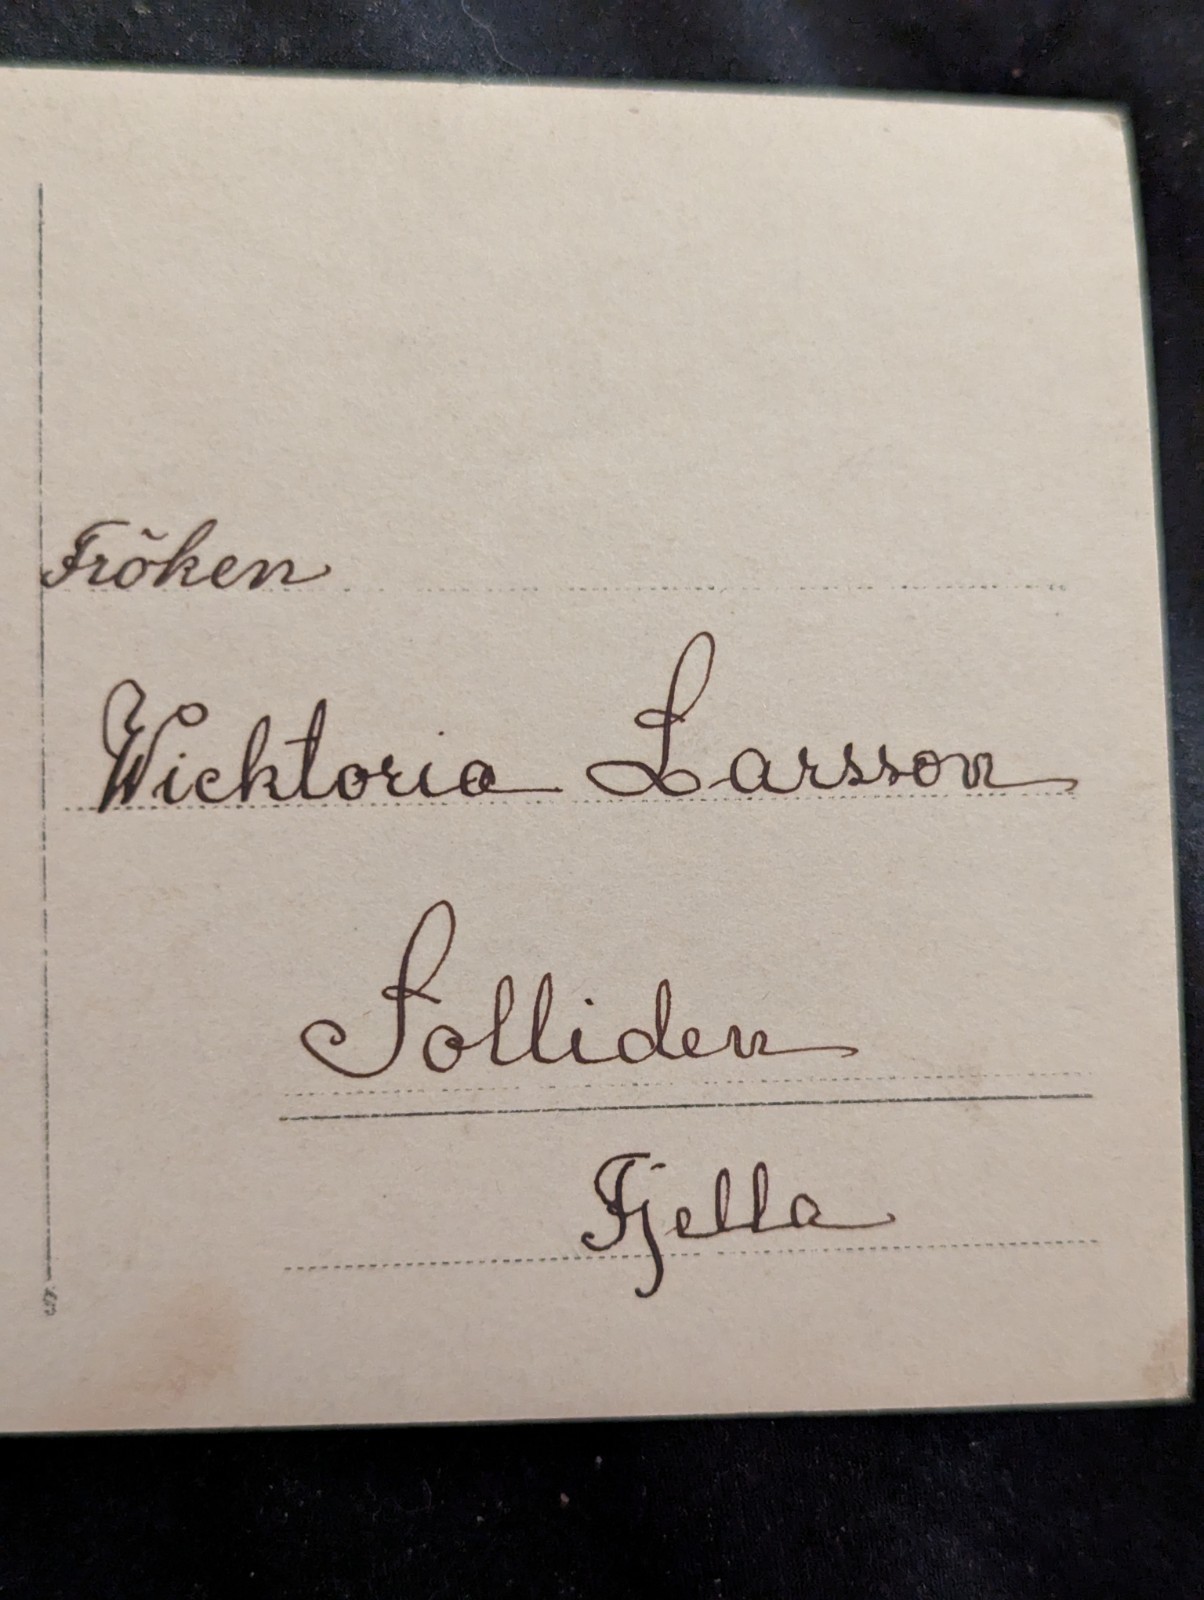 Fröken
Wicktoria Larsson
Solliden
Fjella